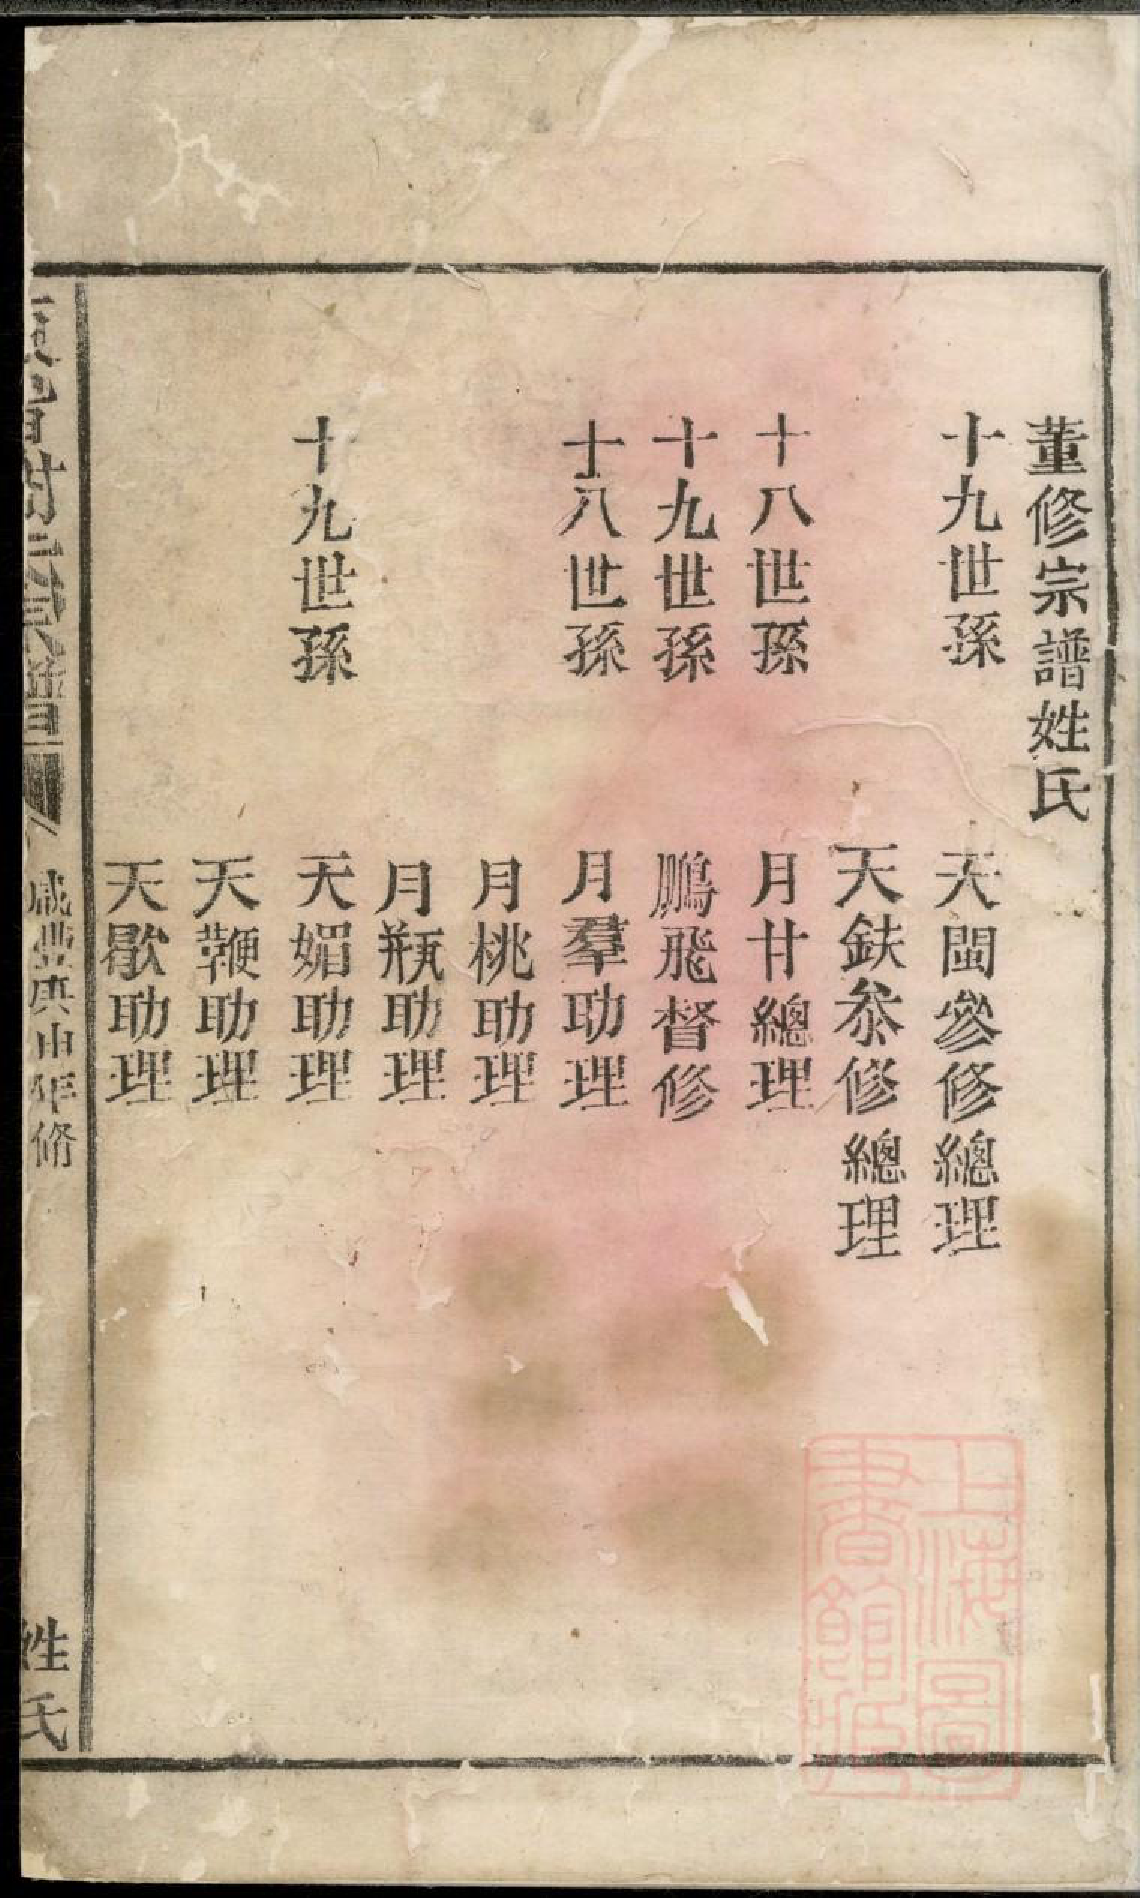 董修宗譜姓氏
十九世孫 天閩參修總理
天鈇叅修總理
十八世孫 月甘總理
十九世孫 鵬飛督修
十八世孫 月羣助理
月桃助理
月瓶助理
十九世孫 天媚助理
天鞭助理
天歇助理
宗譜
咸豐庚申年脩
姓氏
上海圖書館藏